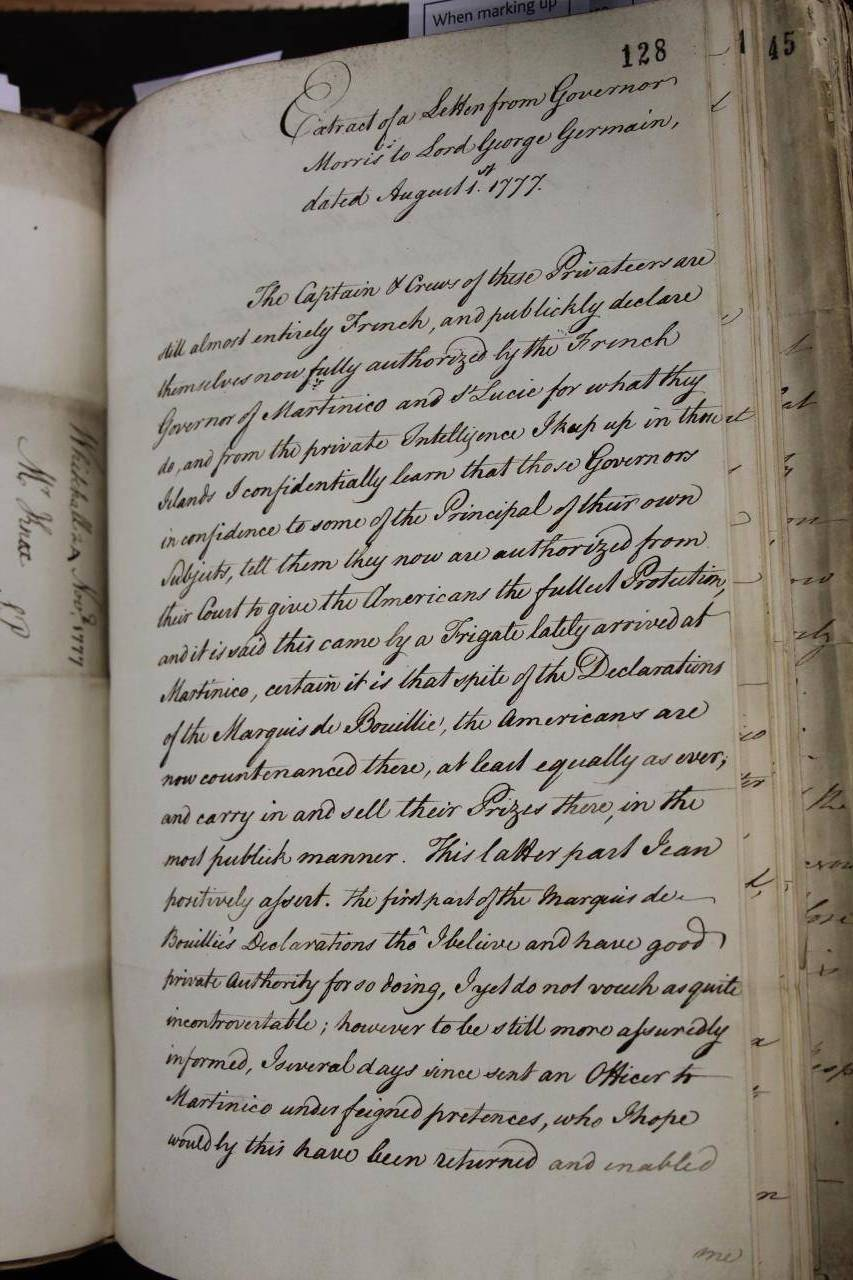 When marking up
128
1
45
Extract of a Letter from Governor
Morris to Lord George Germain,
dated August 1.st 1777.
The Captain & Crews of these Privateers are
still almost entirely French, and publickly declare
themselves now fully authorized by the French
Governor of Martinico and St Lucie for what they
do, and from the private Intelligence I keep up in those
Islands I confidentially learn that those Governors
in confidence to some of the Principal of their own
Subjects, tell them they now are authorized from
their Court to give the Americans the fullest Protection,
and it is said this came by a Frigate lately arrived at
Martinico, certain it is that spite of the Declarations
of the Marquis de Bouillie, the Americans are
now countenanced there, at least equally as ever;
and carry in and sell their Prizes there, in the
most publick manner. This latter part I can
positively assert. the first part of the Marquis de
Bouillie's Declarations tho' I believe and have good
private Authority for so doing, I yet do not vouch as quite
incontrovertable; however to be still more assuredly
informed, I several days since sent an Officer to
Martinico under feigned pretences, who I hope
would by this have been returned and enabled
me
Whitehall Novr 1777
Mr Knox